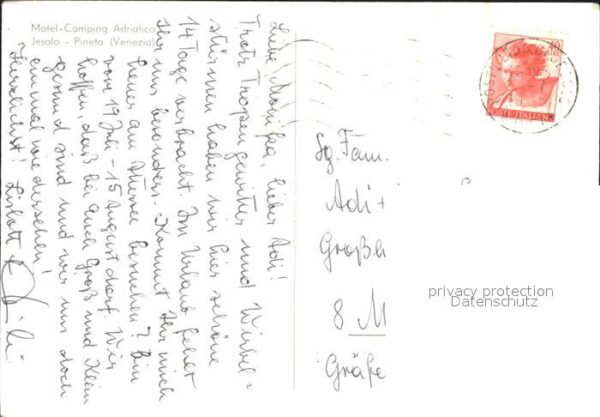 Motel-Camping Adriatico
Jesolo - Pineta (Venezia)
Liebe Monika, lieber Adi!
Trotz Tropengewitter und Wirbel=
stürmen haben wir hier schöne
14 Tage verbracht. Im Urlaub fehlt
Ihr uns besonders. Kommt Ihr mich
heuer am besuchen? Bin
vom 19. Juli - 15. August dort. Wir
hoffen, daß bei Euch Groß und Klein
gesund sind und wir uns doch
einmal wiedersehen!
Herzlichst! Lislott
POSTE ITALIANE
Sg. Fam.
Adi +
Große
8 M
Gräfe
privacy protection
Datenschutz